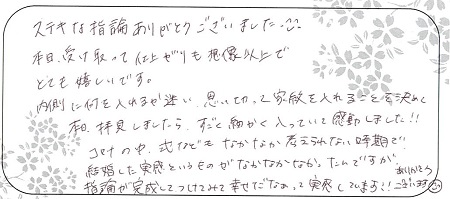 ステキな指論ありがとうございました
本日、受け取って仕上がりも想像以上で
とても嬉しいです。
内側に何を入れるか迷い、思い切って家紋を入れることを決めて
本日、拝見しましたら、すごく細かく入っていて感動しました!!
コロナの中、式などもなかなか考えられない時期で
結婚した実感というものがなかなかなかったんですが、
指論が完成してつけてみて幸せだなぁって実感しています!! ありがとうございます